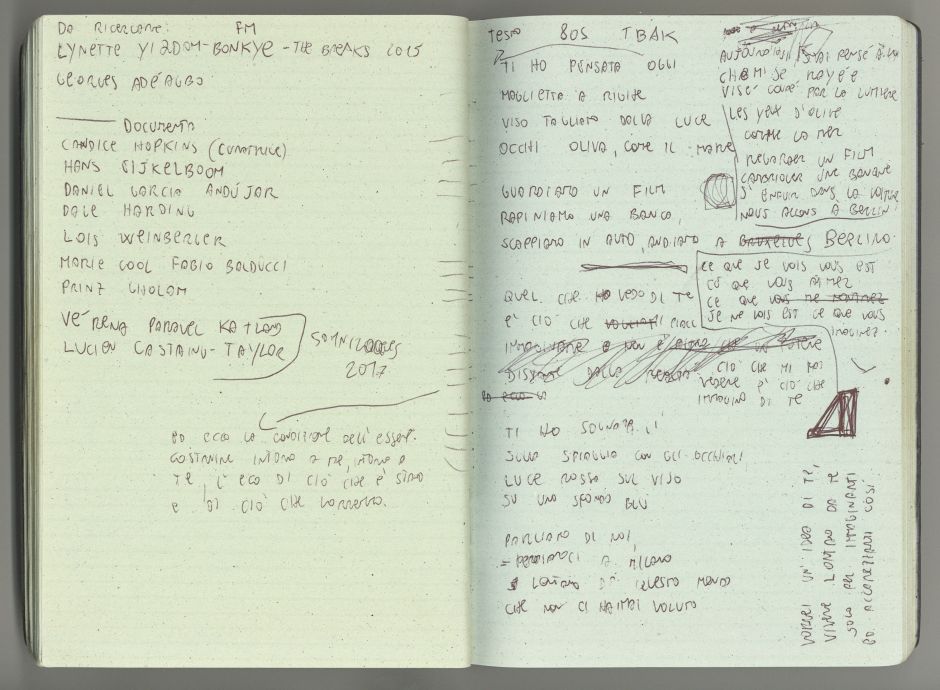 DA RICERCARE: FM
LYNETTE YIADOM-BONKYE - THE BREAKS 2015
GEORGES ADÉAGBO
DOCUMENTA
CANDICE HOPKINS (CURATRICE)
HANS EIJKELBOOM
DANIEL GARCIA ANDÚJAR
DALE HARDING
LOIS WEINBERGER
MARIE COOL FABIO BALDUCCI
PRINZ GHOLAM
VÉRENA PARAVEL
LUCIEN CASTAING-TAYLOR
SOMNILOQUIES
2017
ED ECCO LA CONDIZIONE DELL'ESSERE.
COSTRUIRE INTORNO A ME, INTORNO A
TE, L'ECO DI CIÒ CHE È STATO
E DI CIÒ CHE VORREMMO.
TESTO 80S TBAK
TI HO PENSATA OGGI
MAGLIETTA A RIGHE
VISO TAGLIATO DALLA LUCE
OCCHI OLIVA, COME IL MARE
GUARDIAMO UN FILM
RAPINIAMO UNA BANCA,
SCAPPIAMO IN AUTO, ANDIAMO A BRUXELLES BERLINO.
QUEL CHE VEDO DI TE
È CIÒ CHE
IMMAGINARE
DISTANTE DALLA REALTÀ
ED ECCO
TI HO SOGNATA LÌ
SULLA SPIAGGIA CON GLI OCCHIALI
LUCE ROSSA SUL VISO
SU UNO SFONDO BLU
PARLIAMO DI NOI,
A MILANO
LONTANO DA QUESTO MONDO
CHE NON CI HA MAI VOLUTO
AUJOURD'HUI J'AI PENSÉ À
CHEMISE RAYÉE
VISE COUPÉ PAR LA LUMIÈRE
LES YEUX D'OLIVE
COMME LA MER
REGARDER UN FILM
CAMBRIOLER UNE BANQUE
S'ENFUIR DANS LA VOITURE
NOUS ALLONS A BERLIN
CE QUE JE VOIS VOUS EST
CE QUE VOUS AIMEZ
CE QUE VOUS NE
JE NE VOIS EST CE QUE VOUS
IMAGINEZ.
CIÒ CHE MI FAI
VEDERE È CIÒ CHE
IMMAGINO DI TE
VORREI UN'IDEA DI TE,
VIVERE LONTANO DA TE
SOLO PER IMMAGINARTI
ED ACCAREZZARTI COSÌ